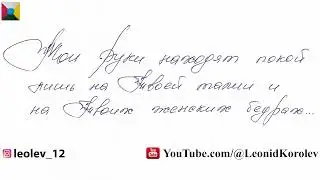 Мои руки находят покой
лишь на Твоей талии и
на Твоих женских бедрах...
leolev_12
YouTube.com/@LeonidKorolev